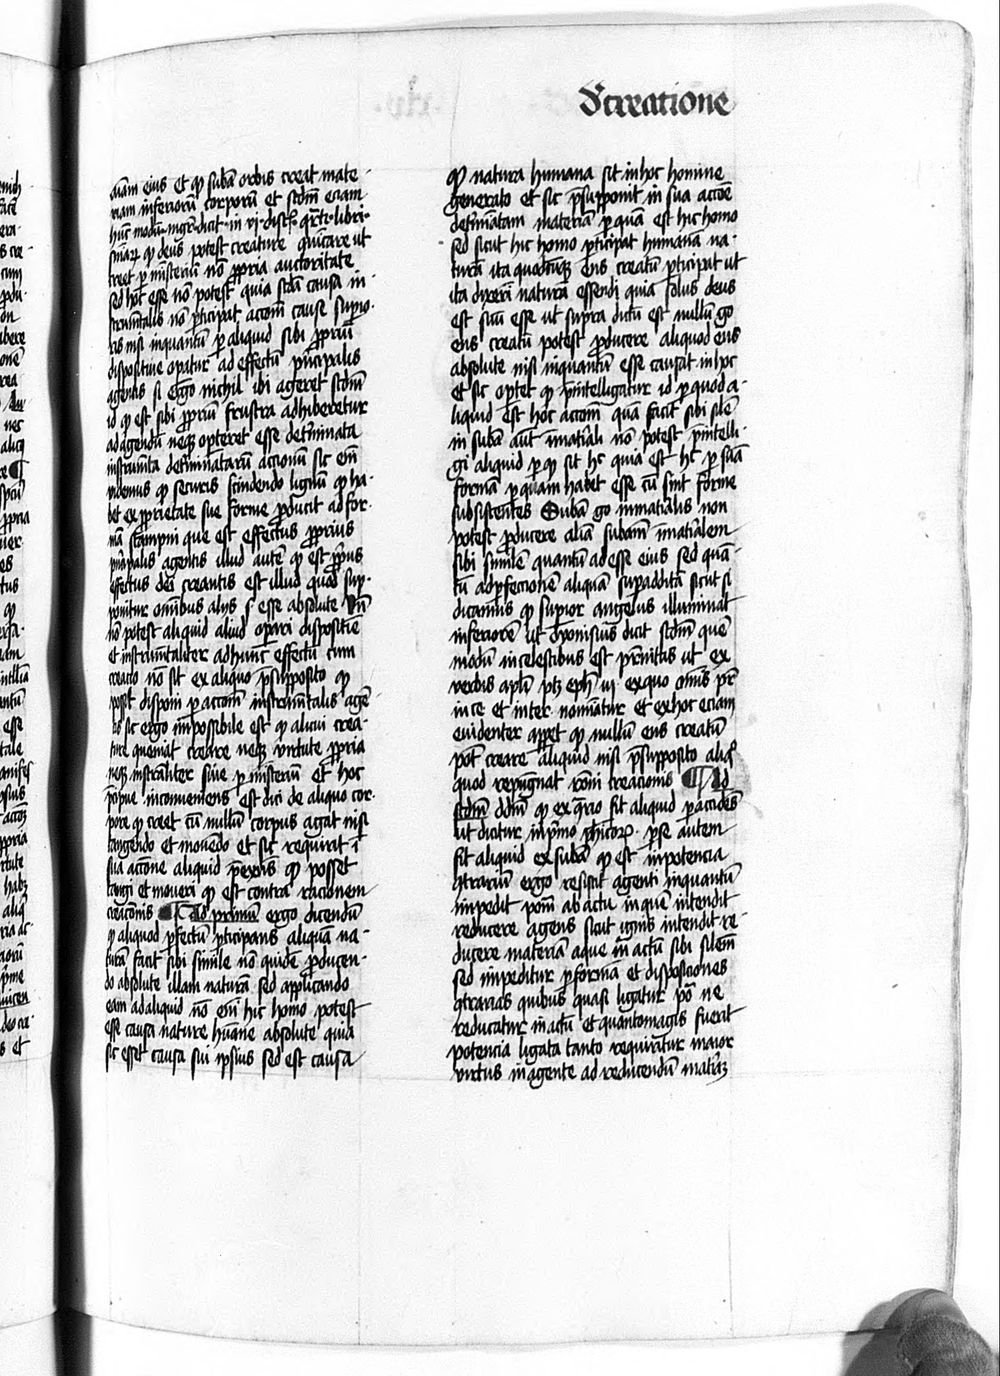 De creatione
aiam eius et qd suba orbis creat mate-
riam inferiorum corporum et scdm eciam
hunc modum mgr dicit in v di quarti libri
sniarum qd deus potest creature communicare ut
creet per misterium non propria auctoritate
sed hoc esse non potest quia scda causa in-
strumentalis non participat accionem cause superio-
ris nisi inquantum per aliquid sibi proprium
dispositiue operatur ad effectum principalis
agentis si ergo nichil ibi ageret scdm
id qd est sibi proprium frustra adhiberetur
ad agendum neque oporteret esse determinata
instrumenta determinatarum accionum sic enim
videmus qd securis scindendo lignum qd ha-
bet ex proprietate sue forme producit ad for-
mam scampni que est effectus proprius
principalis agentis illud autem qd est proprius
effectus dei creantis est illud quod sup-
ponitur omnibus aliis s esse absolute Vn
non potest aliquid aliud operari dispositiue
et instrumentaliter ad hunc effectum cum
creacio non sit ex aliquo presupposito qd
possit disponi per accionem instrumentalis agen-
tis sic ergo impossibile est qd alicui crea-
ture conueniat creare neque virtute propria
neque instrumentaliter siue per misterium et hoc
precipue inconueniens est dici de aliquo cor-
pore qd creet cum nullum corpus agat nisi
tangendo et mouendo et sic requirit in
sua accione aliquid preexistens qd posset
tangi et moueri qd est contra racionem
creacionis ¶ Ad primum ergo dicendum
qd aliquod perfectum participans aliquam na-
turam facit sibi simile non quidem producen-
do absolute illam naturam sed applicando
eam ad aliquid non enim hic homo potest
esse causa nature humane absolute quia
sic esset causa sui ipsius sed est causa
qd natura humana sit in hoc homine
generato et sic presupponit in sua accione
determinatam materiam per quam est hic homo
sed sicut hic homo participat humanam na-
turam ita quodcumque ens creatum participat ut
ita dixerim naturam essendi quia solus deus
est suum esse ut supra dictum est nullum ergo
ens creatum potest producere aliquod ens
absolute nisi inquantum esse causat in hoc
et sic oportet qd preintelligatur id per quod a-
liquid est hoc accioni qua facit sibi simile
in suba autem immateriali non potest preintelli-
gi aliquid per qd sit hec quia est hec per suam
formam per quam habet esse cum sint forme
subsistentes Suba ergo immaterialis non
potest producere aliam subam immaterialem
sibi similem quantum ad esse eius sed quan-
tum ad perfectionem aliquam superadditam sicut si
dicamus qd superior angelus illuminat
inferiorem ut dyonisius dicit scdm quem
modum in celestibus est paternitas ut ex
verbis apostoli patet eph iii ex quo omnis pater
in ce et in ter nominatur et ex hoc eciam
euidenter apparet qd nullum ens creatum
potest creare aliquid nisi presupposito aliquo
quod repugnat racioni creacionis ¶ Ad
scdm ddm qd ex contrario fit aliquid per accidens
ut dicitur in primo phicorum per se autem
fit aliquid ex suba qd est in potencia
contrarium ergo resistit agenti inquantum
impedit potenciam ab actu in quem intendit
reducere agens sicut ignis intendit re-
ducere materiam aque in actum sibi similem
sed impeditur per formam et disposiciones
contrarias quibus quasi ligatur potencia ne
reducatur in actum et quantomagis fuerit
potencia ligata tanto requiritur maior
virtus in agente ad reducendum materiam